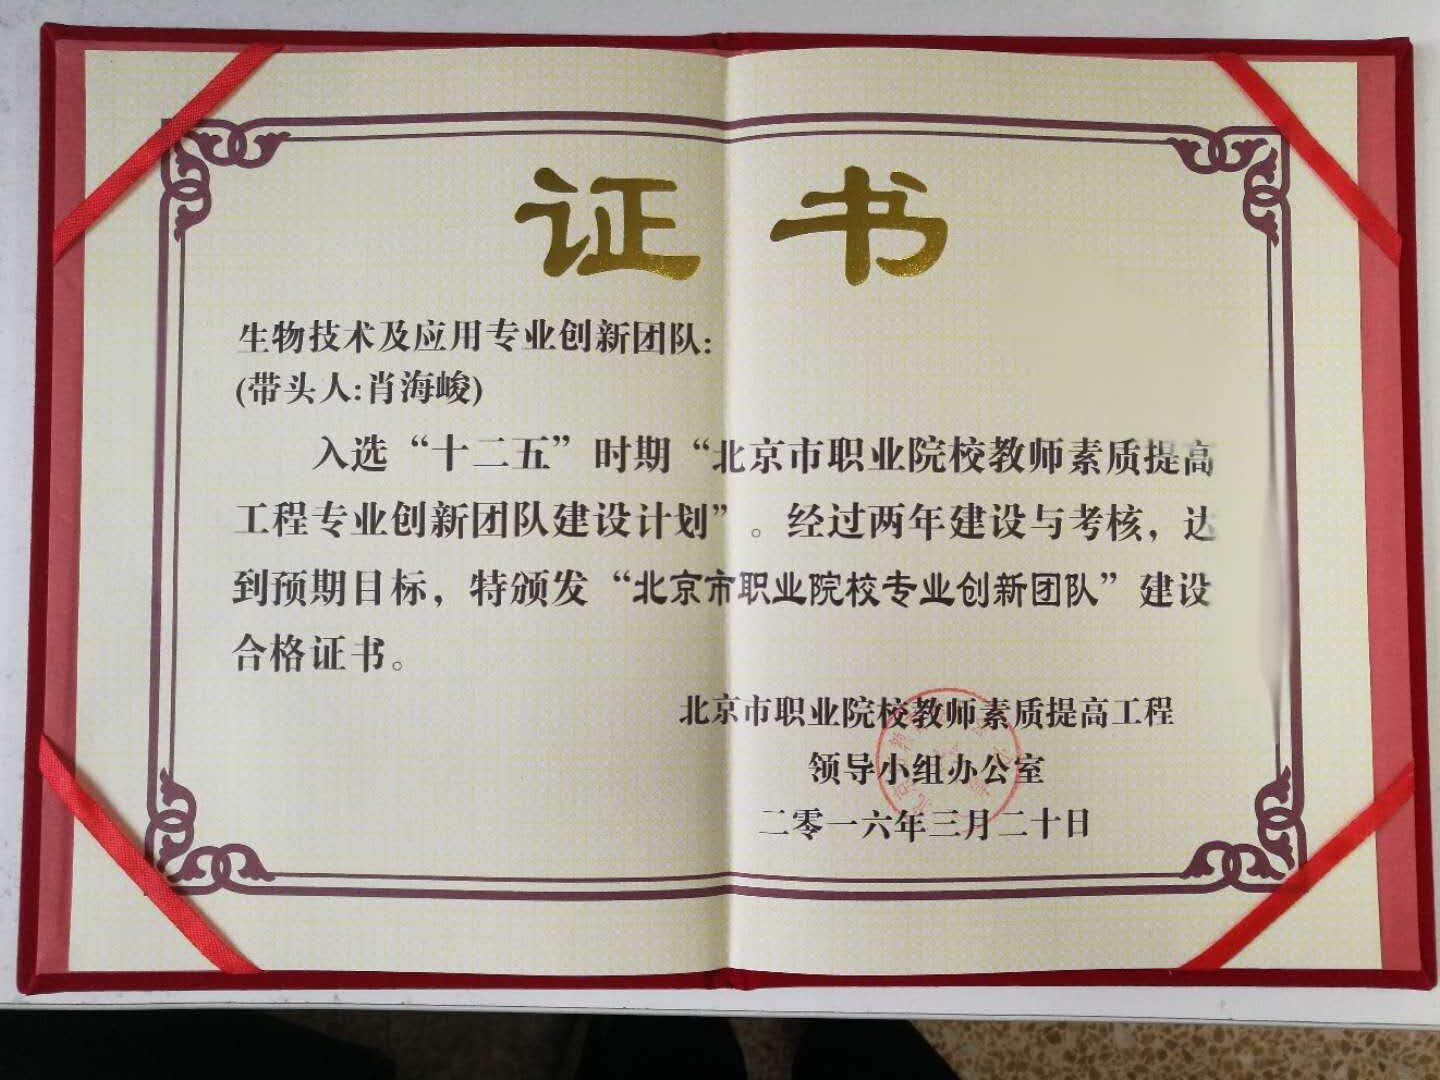 证书
生物技术及应用专业创新团队:
(带头人:肖海峻)
入选“十二五”时期“北京市职业院校教师素质提高
工程专业创新团队建设计划”。经过两年建设与考核，达
到预期目标，特颁发“北京市职业院校专业创新团队”建设
合格证书。
北京市职业院校教师素质提高工程
领导小组办公室
二零一六年三月二十日